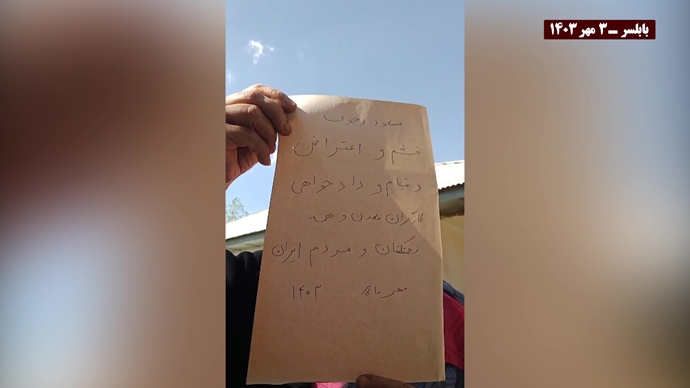 بابلسر ــ ۳ مهر ۱۴۰۳
مسعود رجوی
خشم و اعتراض
و قیام و دادخواهی
کارگران معدن و همه
زحمتکشان و مردم ایران
مهر ماه ۱۴۰۳